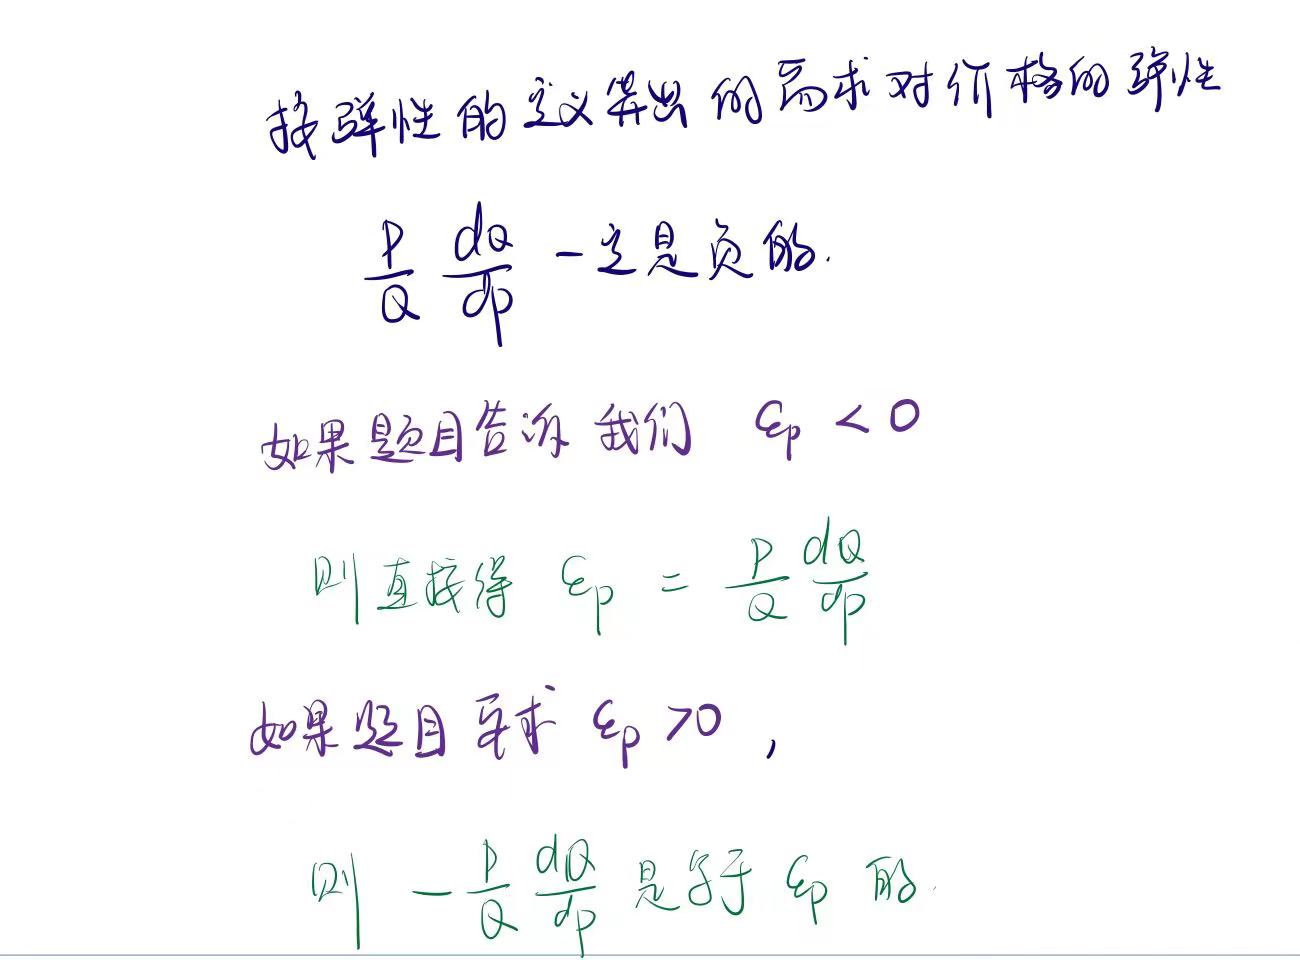 按弹性的定义算出的需求对价格的弹性
P/Q dQ/dp 一定是负的.
如果题目告诉我们 εp < 0
则直接得 εp = P/Q dQ/dp
如果题目要求 εp >0 ,
则 - P/Q dQ/dp 是等于 εp 的.